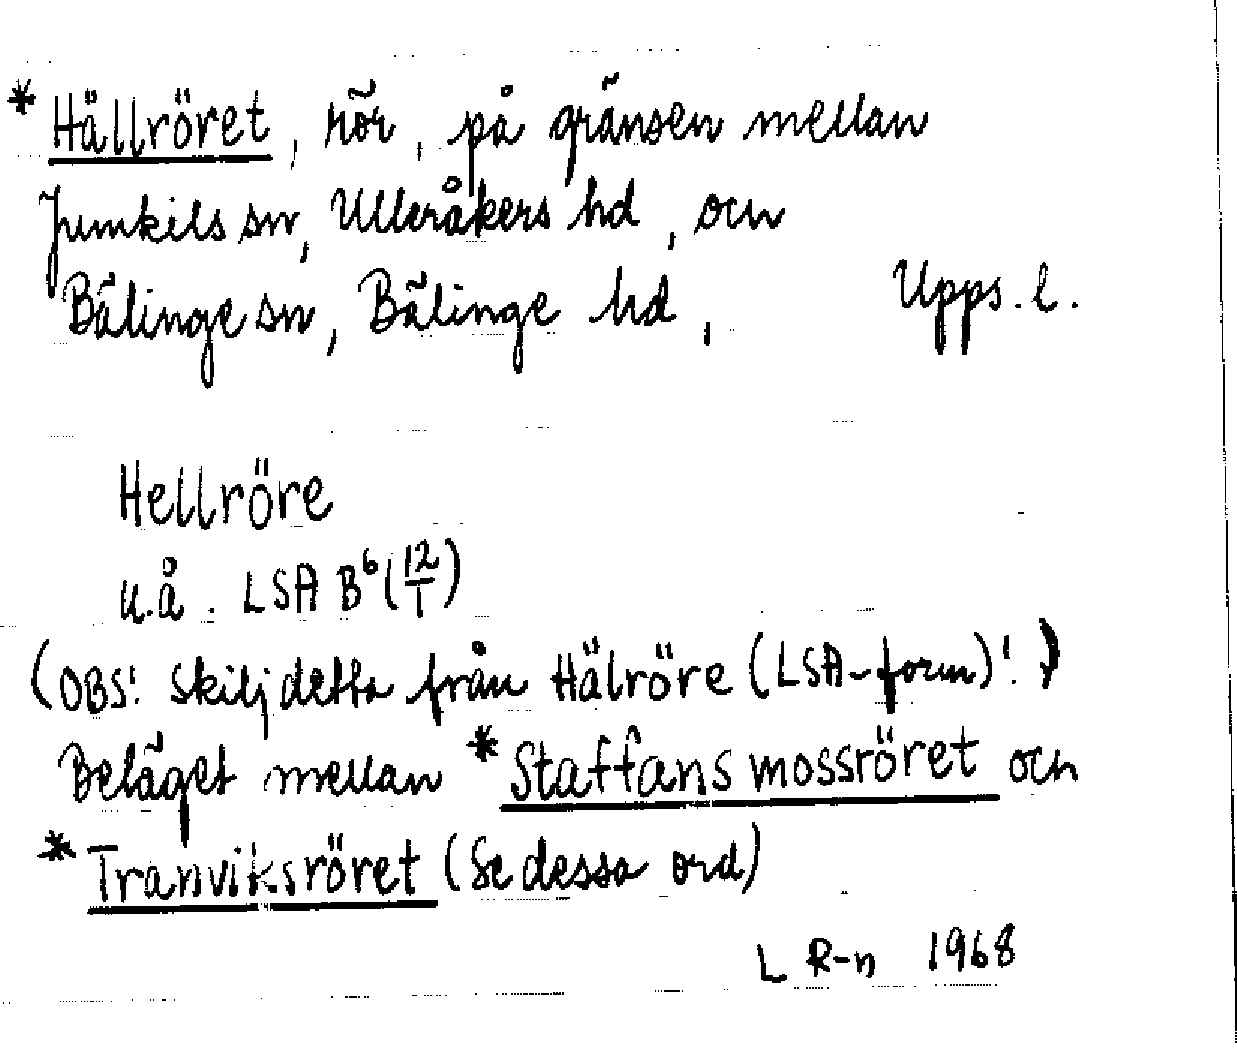 *Hällröret, rör, på gränsen mellan
Jumkils sn, Ulleråkers hd, och
Bälinge sn, Bälinge hd, Upps. l.
Hellröre
u.å. LSA B⁶ (12/1)
(OBS! Skilj detta från Hälröre (LSA-form)!)
Beläget mellan *Staffansmossröret och
*Tranviksröret (Se dessa ord)
L R-n 1968